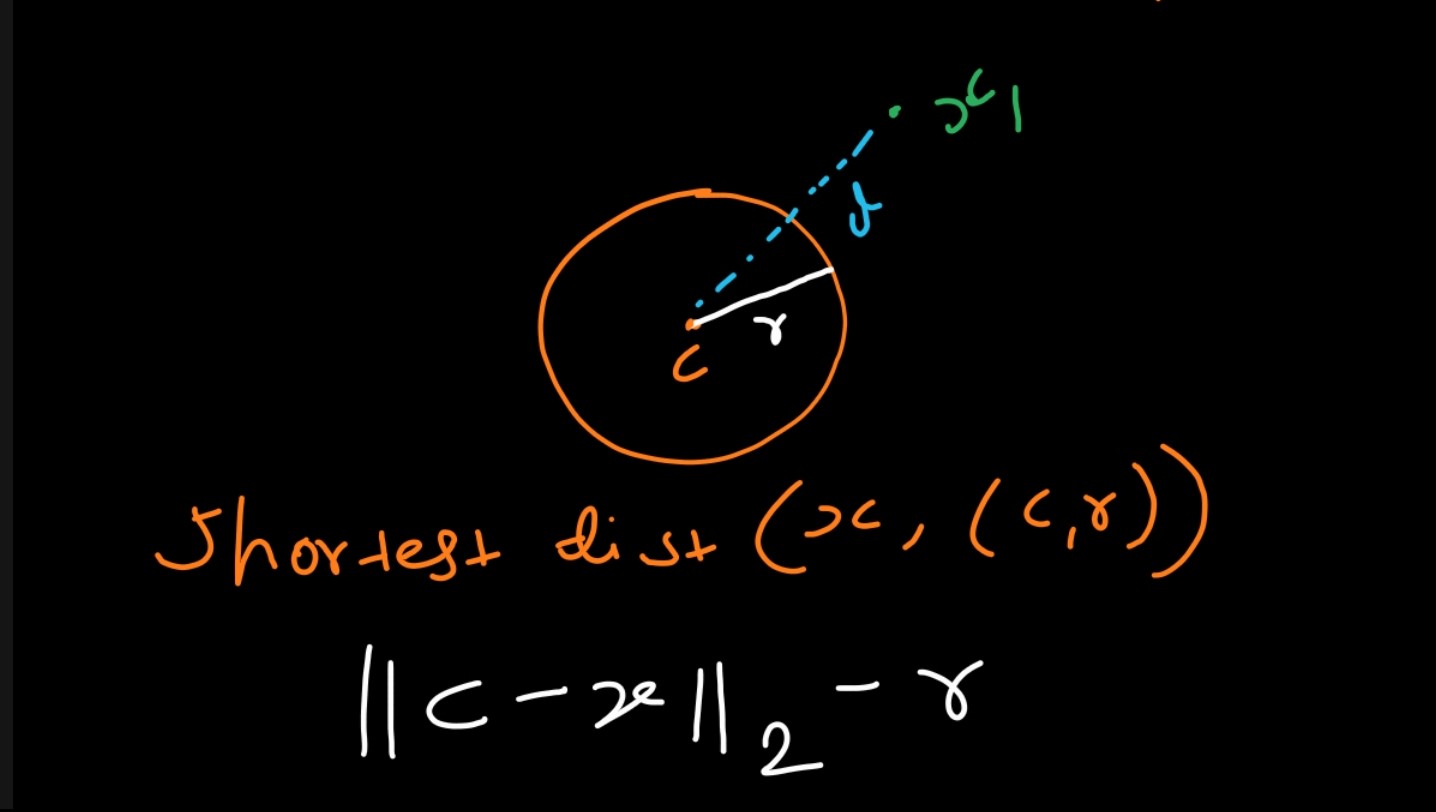 x1
d
r
c
Shortest dist (x, (c,r))
||c-x||₂ - r